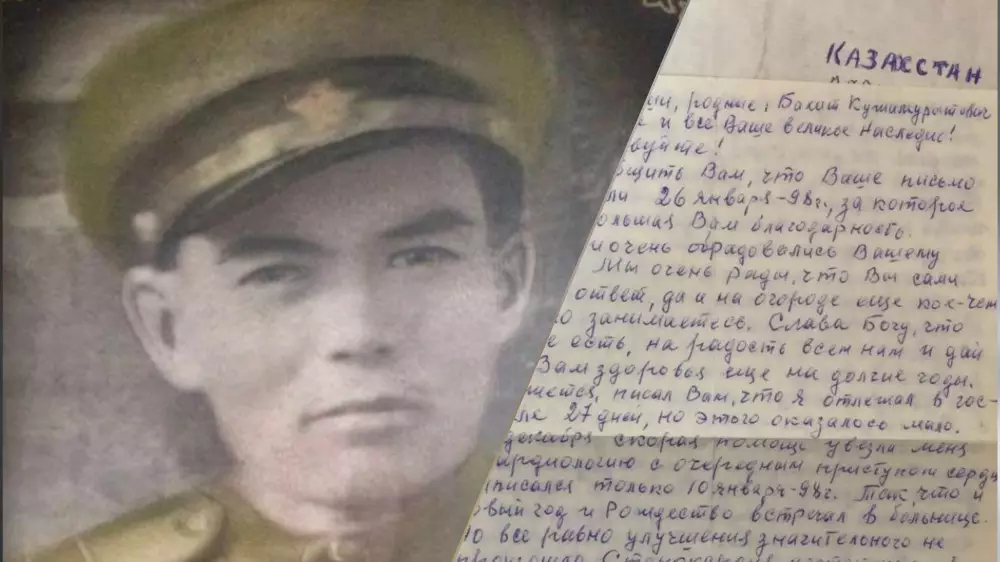 КАЗАХСТАН
родные, Бахит Кужамуратович
и все Ваше великое наследие!
вуйте!
бщить Вам, что Ваше письмо
ли 26 января-98г., за которое
ольшая Вам благодарность.
очень обрадовались Вашему
Мы очень рады, что Вы сами
ответ, да и на огороде еще кое-чем
о занимаетесь. Слава Богу, что
е есть, на радость всем нам и дай
Вам здоровья еще на долгие годы.
жется, писал Вам, что я отлежал в гос-
ле 27 дней, но этого оказалось мало.
декабря скорая помощь увезла меня
ардиологию с очередным приступом сердц
писался только 10 января-98г. Так что и
овый год и Рождество встречал в больнице.
о все равно улучшения значительного не
произошло. Стенокардия